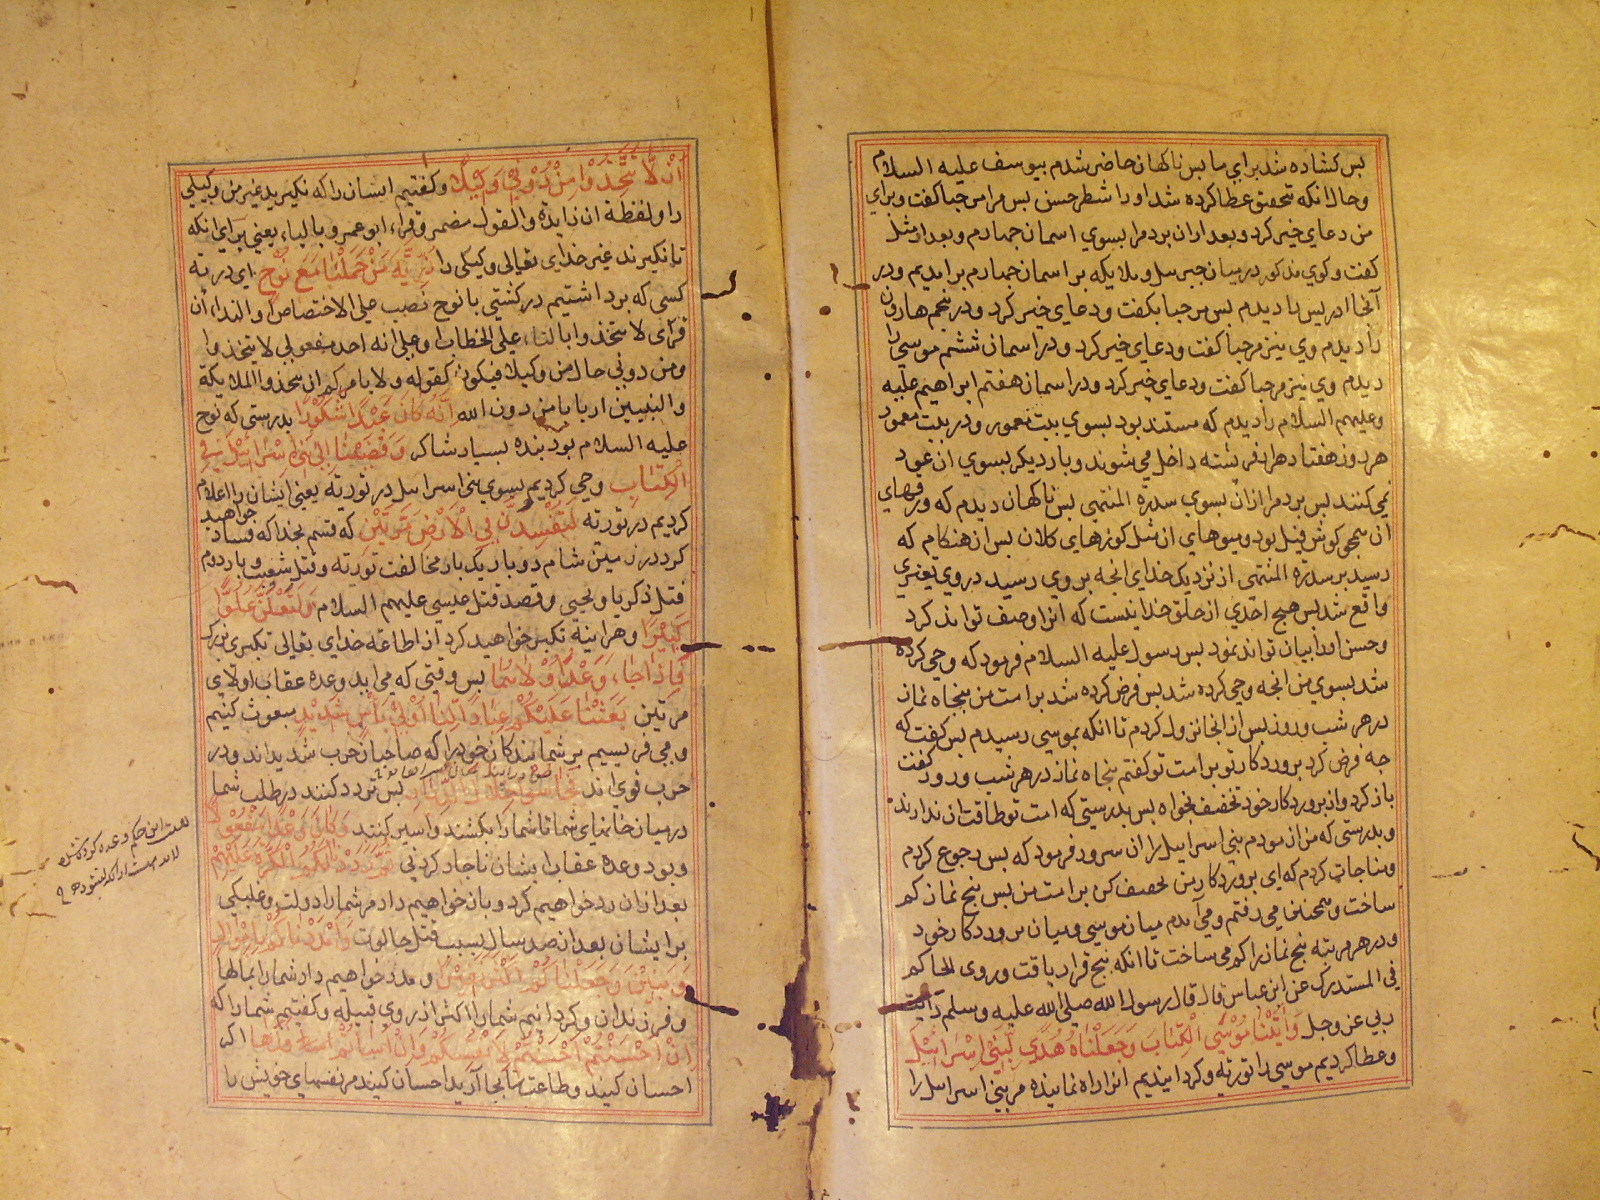 پس کشاده شد برای ما پس ناکهان حاضر شدم بیوسف علیه السلام
و حال انکه تحقیق عطا کرده شد او را شطر حسن پس مرا مرحبا کفت و برای
من دعای خیر کرد و بعد ازان برد مرا بسوی اسمان چهارم و بعد از مثل
کفت و کوی مذکور درمیان جبریل و ملایکه بر اسمان چهارم برامدیم و در
آنجا ادریس را دیدم پس مرحبا بکفت و دعای خیر کرد و در پنجم هارون
را دیدم وی نیز مرحبا کفت و دعای خیر کرد و در اسمان ششم موسی را
دیدم وی نیز مرحبا کفت و دعای خیر کرد و در اسمان هفتم ابراهیم علیه
و علیهم السلام را دیدم که مستند بود بسوی بیت معمور و در بیت معمور
هر روز هفتاد هزار فرشته داخل می شوند و بار دیکر بسوی ان عود
نمی کنند پس برد مرا ازان بسوی سدرة المنتهی پس ناکهان دیدم که ورقهای
آن همچو کوش فیل بود و میوهای ان مثل کوزهای کلان پس ازهنکام که
رسید بر سدرة المنتهی از نزدیک خدای انچه بروی رسید در وی تغیری
واقع شد پس هیچ احدی از خلق خدا نیست که انرا وصف تواند کرد
و حسن انرا بیان تواند نمود پس رسول علیه السلام فرمود که وحی کرده
شد بسوی من انچه وحی کرده شد پس فرض کرده شد بر امت من پنجاه نماز
در هر شب و روز پس از انجا نزول کردم تا انکه بموسی رسیدم پس کفت که
چه فرض کرد پروردکار تو بر امت تو کفتم پنجاه نماز در هر شب و روز کفت
باز کرد و از پروردکار خود تخفیف بخواه پس بدرستی که امت تو طاقت ان ندارند
و بدرستی که من ازمودم بنی اسراییل را ان سرور فرمود که پس رجوع کردم
و مناجات کردم که ای پروردکار من تخفیف کن بر امت من پس پنج نماز کم
ساخت و همچنین می رفتم و می آمدم میان موسی و میان پروردکار خود
و در هر مرتبه پنج نماز را کم می ساخت تا انکه پنج قرار یافت و روی الحاکم
فی المستدرک عن ابن عباس قال قال رسول الله صلی الله علیه وسلم رایت
ربی عز وجل وَاٰتَیْنَا مُوْسَی الْکِتٰبَ وَجَعَلْنٰاهُ هُدًی لِّبَنِیْ اِسْرَائِیْلَ
و عطا کردیم موسی را توریة و کردانیدیم انرا راه نماینده مر بنی اسراییل را
اَنْ لَّا تَتَّخِذُوْا مِنْ دُوْنِیْ وَکِیْلًا و کفتیم ایشان را که نکیرید غیر من وکیلی
را و لفظة ان زایدة والقول مضمر و قراء ابو عمرو بالیاء یعنی برای انکه
تا نکیرند غیر خدای تعالی وکیلی را ذُرِّیَّةَ مَنْ حَمَلْنَا مَعَ نُوْحٍ ای ذریة
کسی که برداشتیم در کشتی با نوح نصب علی الاختصاص او النداء ان
قرای لا تتخذوا بالتاء علی الخطاب او علی انه احد مفعولی لا یتخذوا
و من دونی حال من وکیلا فیکون کقوله ولا یامرکم ان تتخذوا الملایکة
والنبیین اربابا من دون الله اِنَّهٗ کَانَ عَبْدًا شَکُوْرًا بدرستی که نوح
علیه السلام بود بنده بسیار شاکر وَقَضَیْنَا اِلٰی بَنِیْ اِسْرَائِیْلَ فِی
الْکِتٰبِ وحی کردیم بسوی بنی اسراییل در توریة یعنی ایشان را اعلام
کردیم در توریة لَتُفْسِدُنَّ فِی الْاَرْضِ مَرَّتَیْنِ که قسم بخدا که فساد خواهید
کرد در زمین شام دو بار یک بار مخالفت توریة و قتل شعیب و بار دوم
قتل ذکریا و یحیی و قصد قتل عیسی علیهم السلام وَلَتَعْلُنَّ عُلُوًّا
کَبِیْرًا و هراینه تکبر خواهید کرد از اطاعة خدای تعالی تکبری بزرک
فَاِذَا جَاءَ وَعْدُ اُوْلٰهُمَا پس وقتی که می اید وعده عقاب اولای
مرتین بَعَثْنَا عَلَیْکُمْ عِبَادًا لَّنَا اُوْلِیْ بَاْسٍ شَدِیْدٍ مبعوث کنیم
و می فرستیم بر شما بندکان خود را که صاحبان حرب شدید اند و در
حرب قوی اند فَجَاسُوْا خِلٰلَ الدِّیَارِ پس تردد کنند در طلب شما
درمیان خانهای شما تا شما را بکشند و اسیر کنند وَکَانَ وَعْدًا مَّفْعُوْلًا
و بود وعده عقاب ایشان ناچار کردنی ثُمَّ رَدَدْنَا لَکُمُ الْکَرَّةَ عَلَیْهِمْ
بعد ازان رد خواهیم کرد و باز خواهیم داد مر شما را دولت و غلبکی
بر ایشان بعد از صد سال بسبب قتل جالوت وَاَمْدَدْنٰکُمْ بِاَمْوَالٍ
وَّبَنِیْنَ وَجَعَلْنٰکُمْ اَکْثَرَ نَفِیْرًا و مدد خواهیم داد شما را بمالها
و فرزندان و کردانیم شما را اکثر از روی قبیله و کفتیم شما را که
اِنْ اَحْسَنْتُمْ اَحْسَنْتُمْ لِاَنْفُسِکُمْ وَاِنْ اَسَاْتُمْ فَلَهَا اکر
احسان کنید و طاعت بجا آرید احسان کنید مر نفسهای خویش را